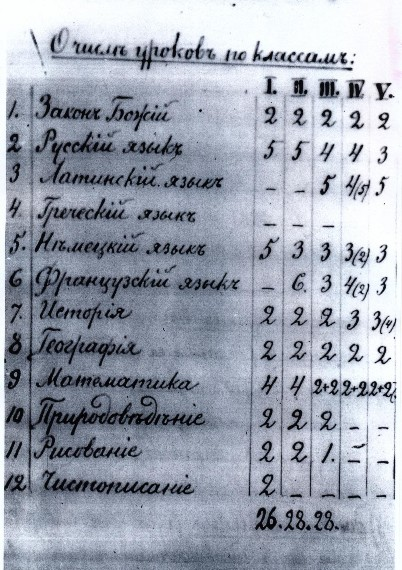 О числѣ уроковъ по классамъ:
I. II. III. IV V.
1. Законъ Божій 2 2 2 2 2
2 Русскій языкъ 5 5 4 4 3
3 Латинскій языкъ – – 5 4(5) 5
4. Греческій языкъ – – –
5. Нѣмецкій языкъ 5 3 3 3(2) 3
6 Французскій языкъ – 6. 3 4(2) 3
7. Исторія 2 2 2 3 3(4)
8 Географія 2 2 2 2 2
9 Математика 4 4 2+2 2+2 2+2(
10 Природовѣдѣніе 2 2 2 – –
11 Рисованіе 2 2 1. – –
12. Чистописаніе 2 – – – –
26. 28. 28.